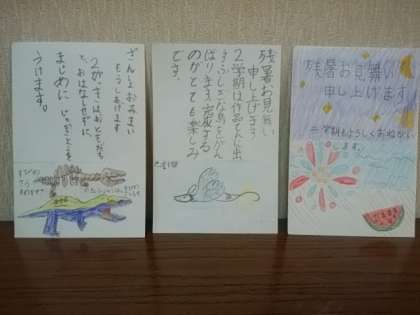 ざんしょおみまい
もうしあげます
2がっきはおともだち
と、おはなしせずに、
まじめにじゅぎょうを
うけます。
残暑お見舞い
申し上げます
2学期は作品てんに出
す
な鳥をがん
ばります。完成する
のがとても楽しみ
です。
残暑お見舞い
申し上げます
二学期もよろしくおねがい
します。